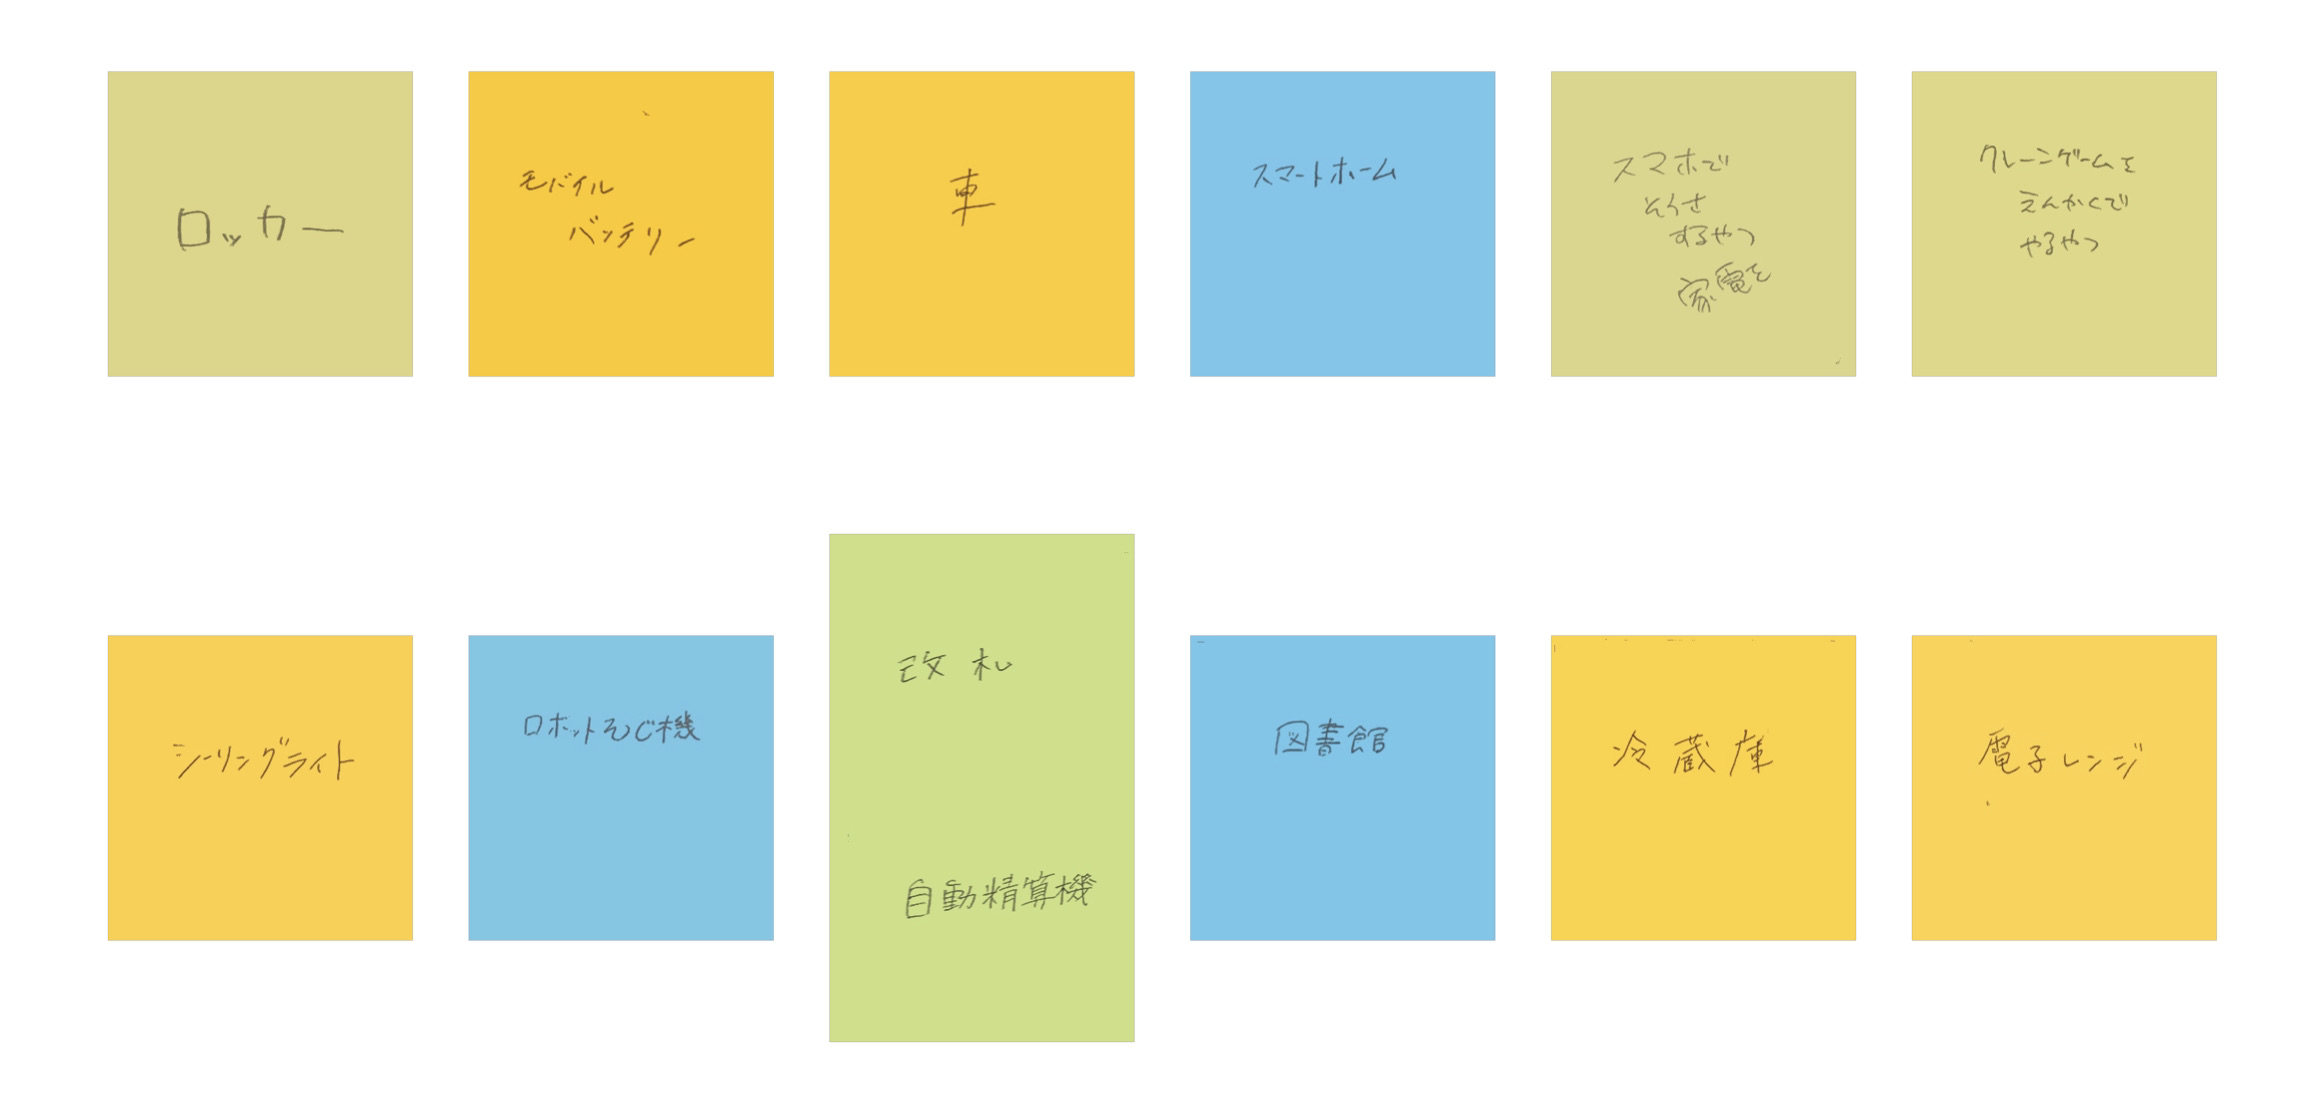 ロッカー
モバイル
バッテリー
車
スマートホーム
スマホで
そうさ
するやつ
家電を
クレーンゲームを
えんかくで
やるやつ
シーリングライト
ロボットそうじ機
改札
自動精算機
図書館
冷蔵庫
電子レンジ